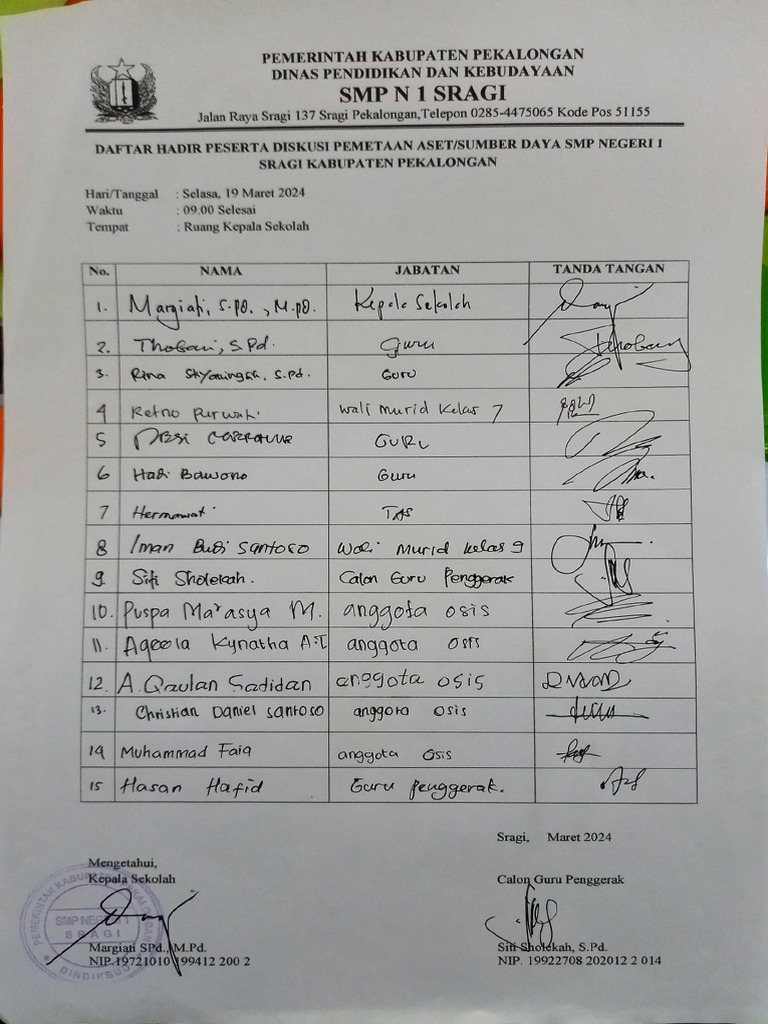 PEMERINTAH KABUPATEN PEKALONGAN
DINAS PENDIDIKAN DAN KEBUDAYAAN
SMP N 1 SRAGI
Jalan Raya Sragi 137 Sragi Pekalongan,Telepon 0285-4475065 Kode Pos 51155
DAFTAR HADIR PESERTA DISKUSI PEMETAAN ASET/SUMBER DAYA SMP NEGERI 1
SRAGI KABUPATEN PEKALONGAN
Hari/Tanggal : Selasa, 19 Maret 2024
Waktu : 09.00 Selesai
Tempat : Ruang Kepala Sekolah
No. NAMA JABATAN TANDA TANGAN
1. Margiati, S.Pd., M.Pd. Kepala Sekolah
2. Thobari, S.Pd. Guru
3. Rina S.Pd. Guru
4 Retno Purwati Wali Murid Kelas 7
5 GURU
6 Hadi Bawono Guru
7 Hermawati TAS
8 Iman Budi Santoso Wali Murid Kelas 9
9. Siti Sholekah. Calon Guru Penggerak
10. Puspa Marasya M. anggota osis
11. Aqeela Kynatha A.T anggota osis
12. A. Qaulan Sadidan anggota osis
13. Christian Daniel Santoso anggota osis
14 Muhammad Faiq anggota Osis
15 Hasan Hafid Guru Penggerak.
Sragi, Maret 2024
Mengetahui,
Kepala Sekolah Calon Guru Penggerak
PEMERINTAH KABUPATEN PEKALONGAN
SMP NEGERI 1
SRAGI
DINDIKBUD
Margiati SPd., M.Pd. Siti Sholekah, S.Pd.
NIP.19721010 199412 200 2 NIP. 19922708 202012 2 014